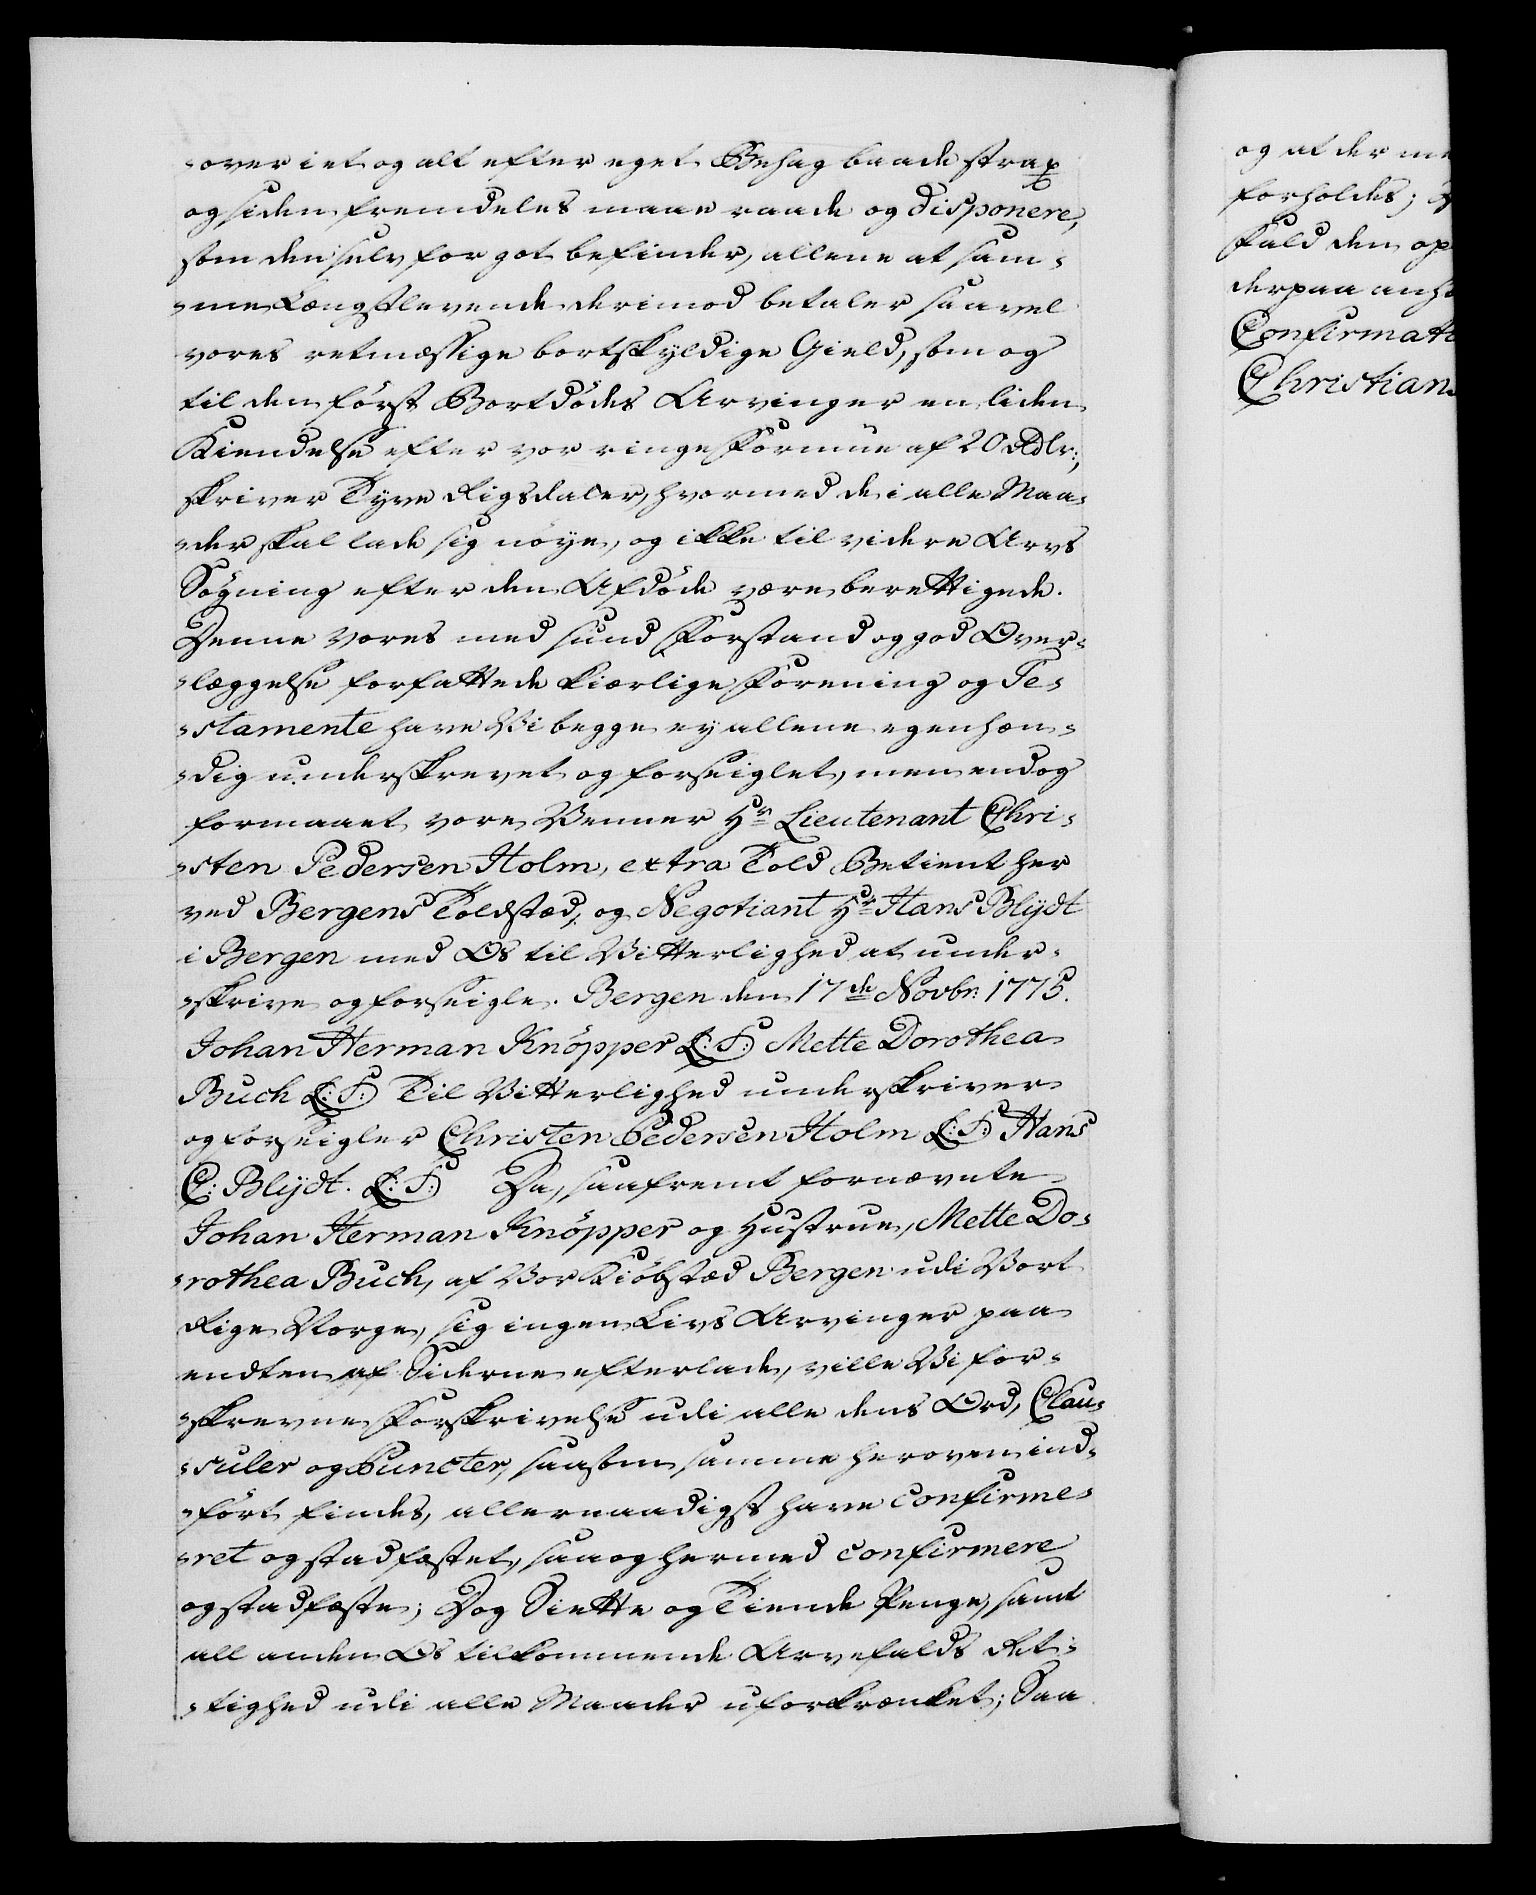 -over i et og alt efter eget Behag baade strax
og siden fremdeles maae raade og disponere,
som den selv for got befinder, allene at sam-
-me Længstlevende derimod betaler saavel
vores retmæssige bortskyldige Gield, som og
til den först Bortdödes Arvinger en liden
Kiendelse efter vor ringe Formue af 20 Rdlr:,
skriver Tyve Rigsdaler, hvormed de i alle Maa-
-der skal lade sig nöye, og ikke til videre Arvs
Sögning efter den Afdöde være berettigede.
Denne vores med sund Forstand og god Over-
-læggelse forfattede kiærlige Forening og Te-
-stamente have Vi begge ey allene egenhæn-
-dig underskrevet og forseiglet, men endog
formaaet vore Venner Hr Lieutenant Chri-
-sten Pedersen Holm, extra Told Betient her
ved Bergens Toldstæd, og Negotiant Hr Hans Blijdt
i Bergen med Os til Vitterlighed at under-
-skrive og forseigle. Bergen den 17de Novbr: 1775.
Johan Herman Knöpper L:S: Mette Dorothea
Buch L:S: Til Vitterlighed underskriver
og forseigler Christen Pedersen Holm L:S: Hans
C: Blijdt. L:S: Da, saafremt fornævnte
Johan Herman Knöpper og Hustrue, Mette Do-
-rothea Buch, af Vor Kiöbstæd Bergen udi Vort
Rige Norge, sig ingen Livs Arvinger paa
endten af Siderne efterlade, ville Vi for-
-skrevne Forskrivelse udi alle dens Ord, Clau-
-suler og Puncter, saasom samme heroven ind-
-fört findes, allernaadigst have confirme-
-ret og stadfæstet, saa og hermed confirmere
og stadfæste; Dog Siette og Tiende Penge, samt
all anden Os tilkommende Arvefalds Ret-
-tighed udi alle Maader uforkrænket; Saa
og at der me
forholdes;
skuld den op
derpaa anho
Confirmati
Christians